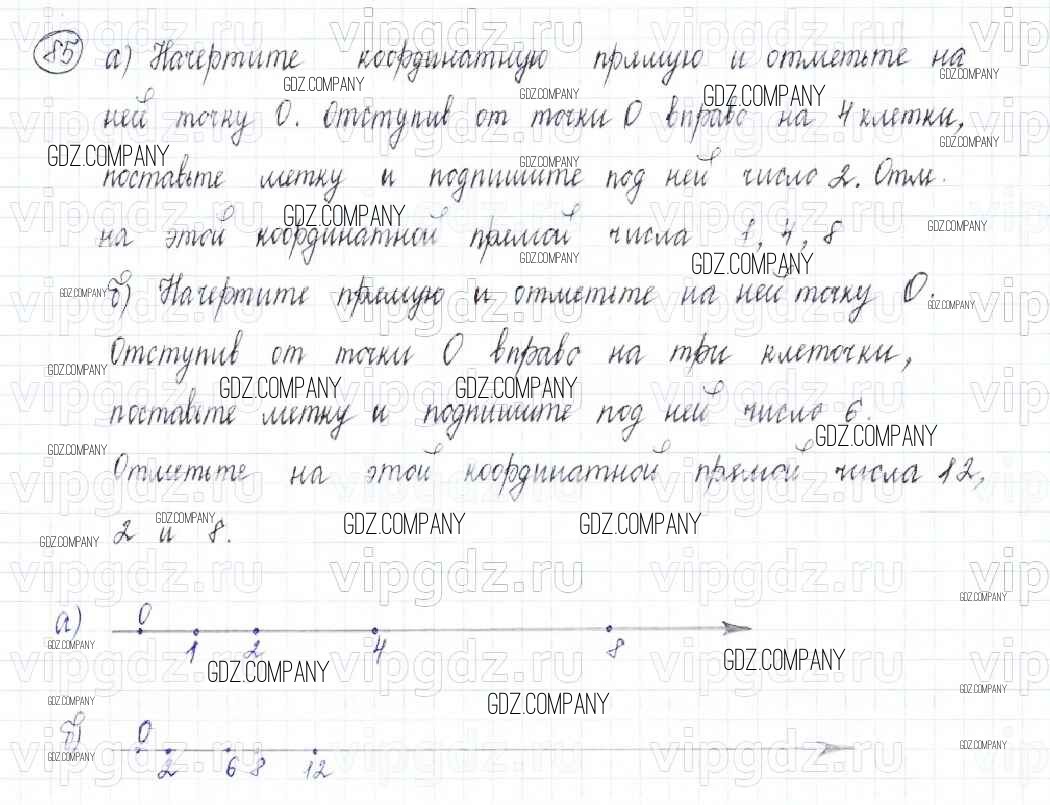 85 а) Начертите координатную прямую и отметьте на
ней точку О. Отступив от точки О вправо на 4 клетки,
поставьте метку и подпишите под ней число 2. Отм.
на этой координатной прямой числа 1, 4, 8
б) Начертите прямую и отметьте на ней точку О.
Отступив от точки О вправо на три клеточки,
поставьте метку и подпишите под ней число 6.
Отметьте на этой координатной прямой числа 12,
2 и 8.
а) 0 1 2 4 8
б) 0 2 6 8 12
vipgdz.ru
GDZ.COMPANY